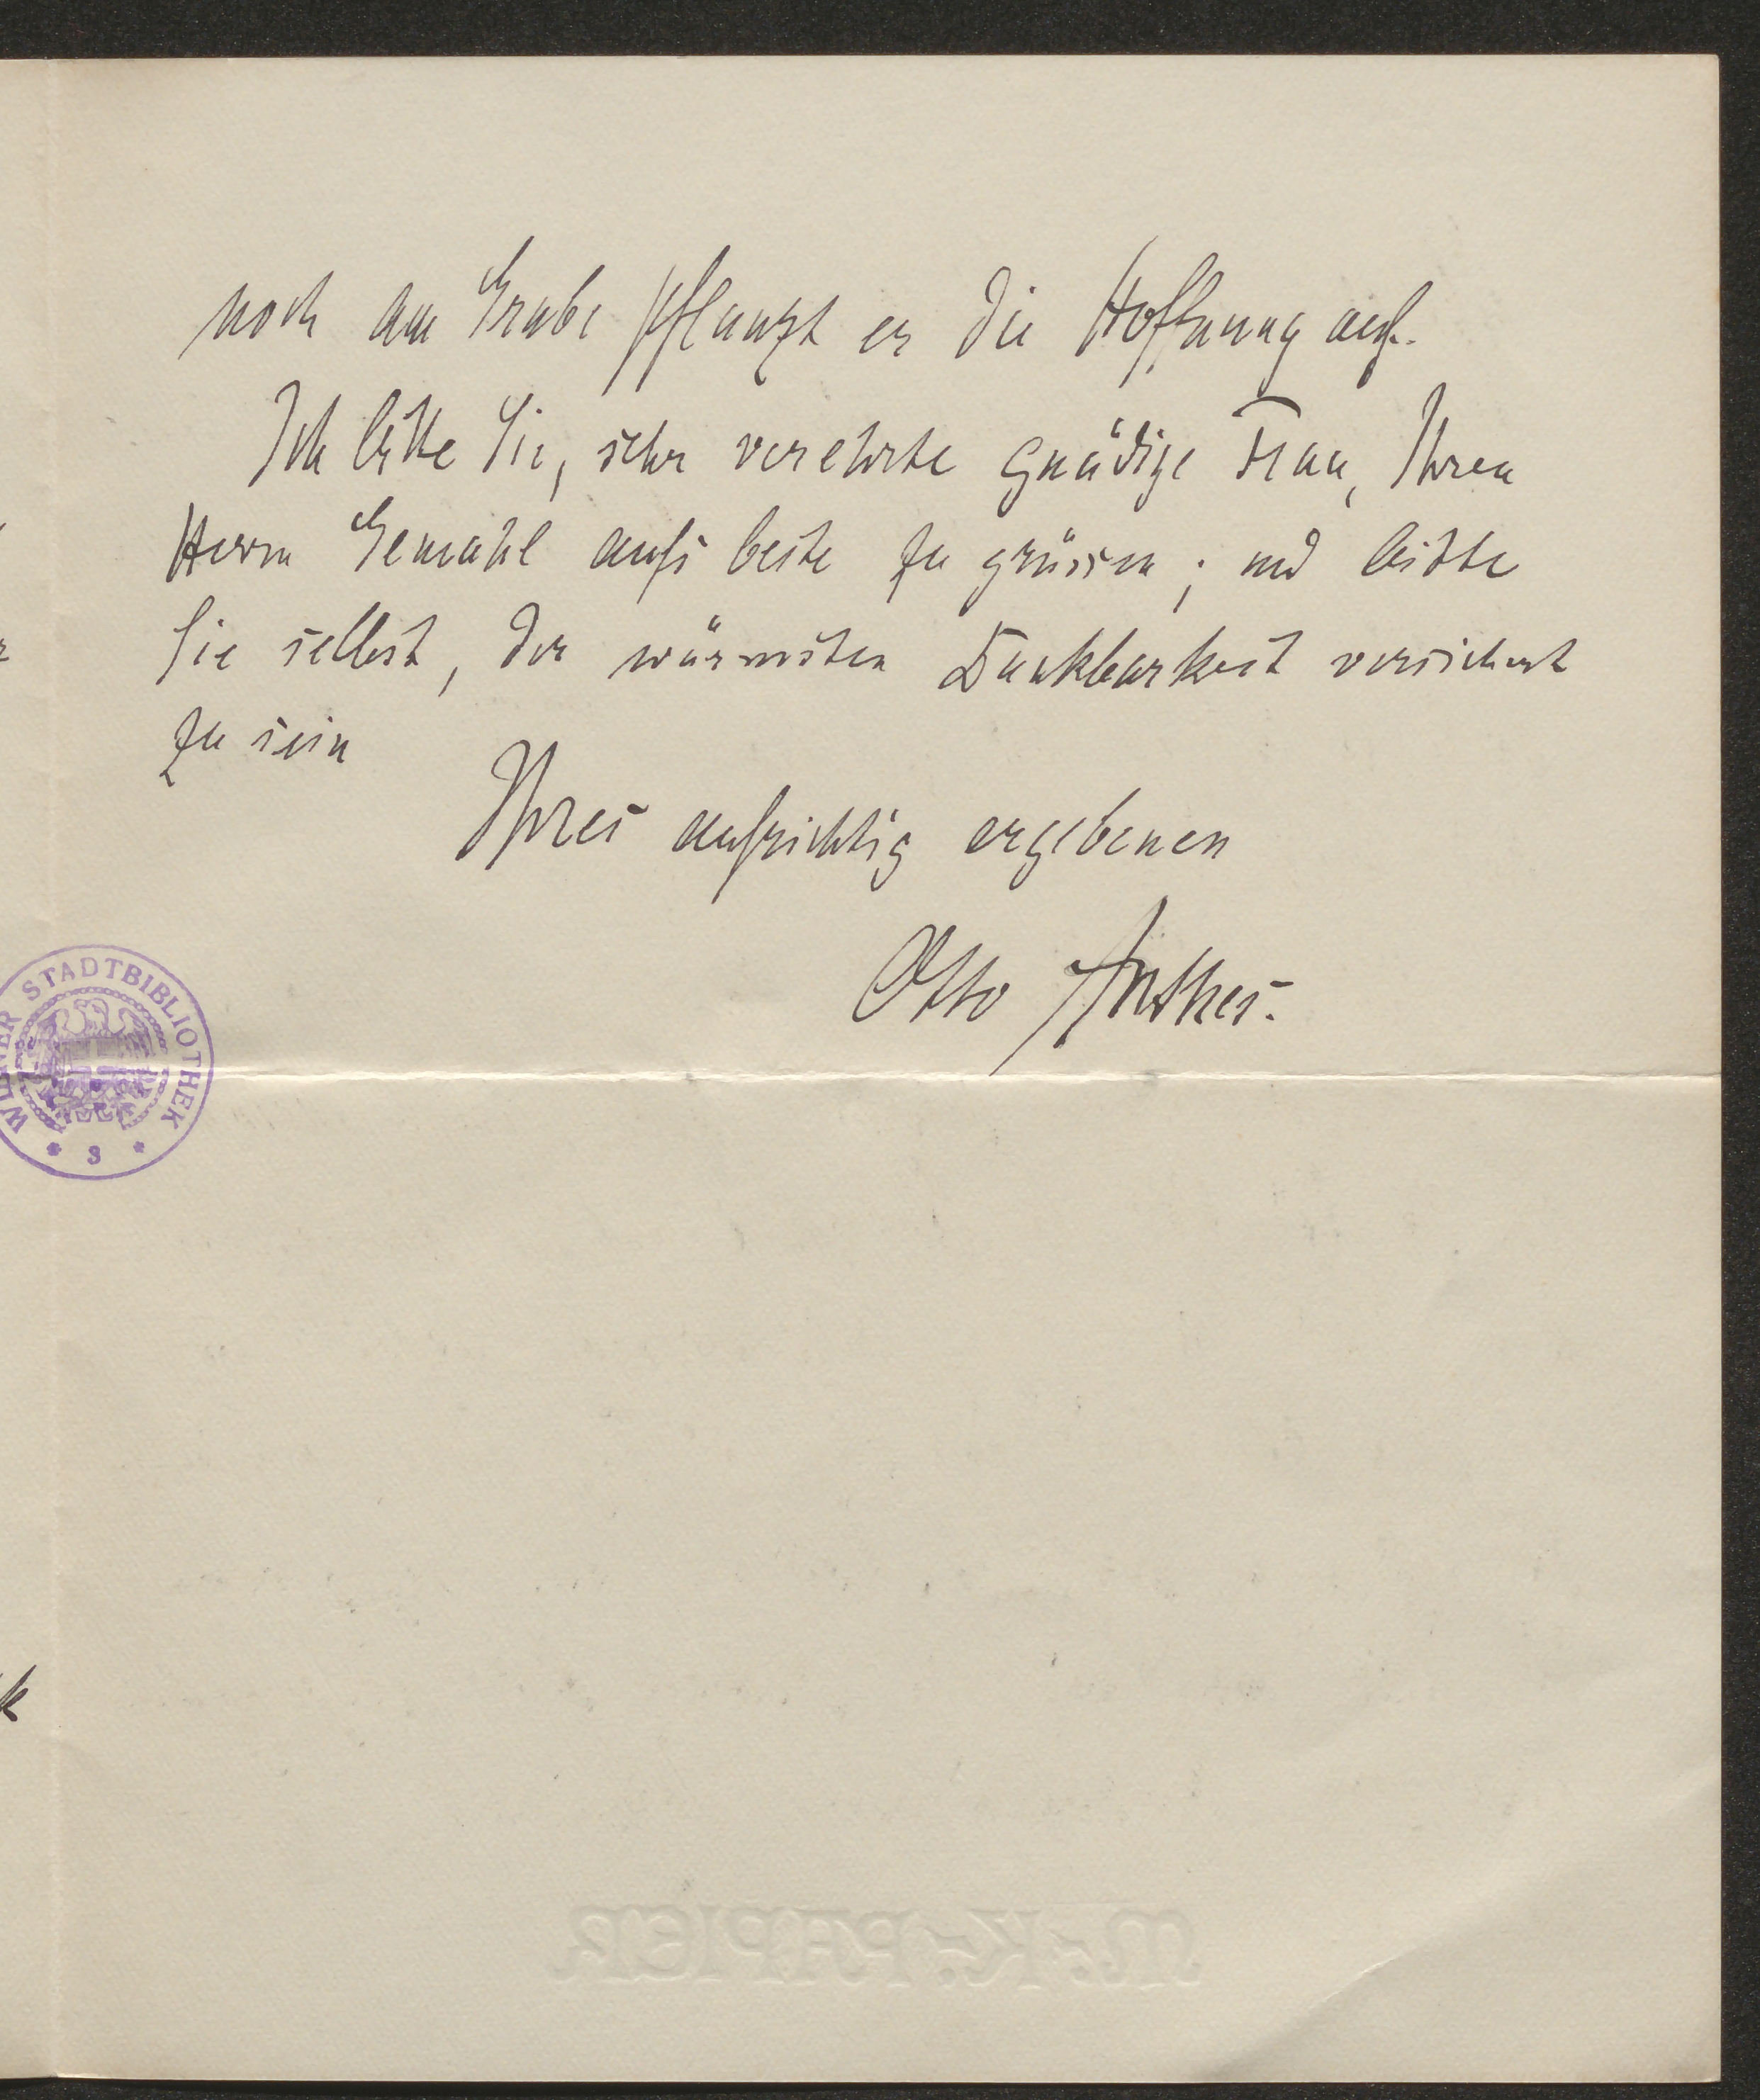 noch am Grabe pflanzt er die Hoffnung auf.
Ich bitte Sie, sehr verehrte gnädige Frau, Ihren
Herrn Gemahl aufs beste zu grüssen; und bitte
Sie selbst, der wärmsten Dankbarkeit versichert
zu sein
Ihres aufrichtig ergebenen
Otto Anthes.
WIENER STADTBIBLIOTHEK
* 3 *
M.K.PAPIER